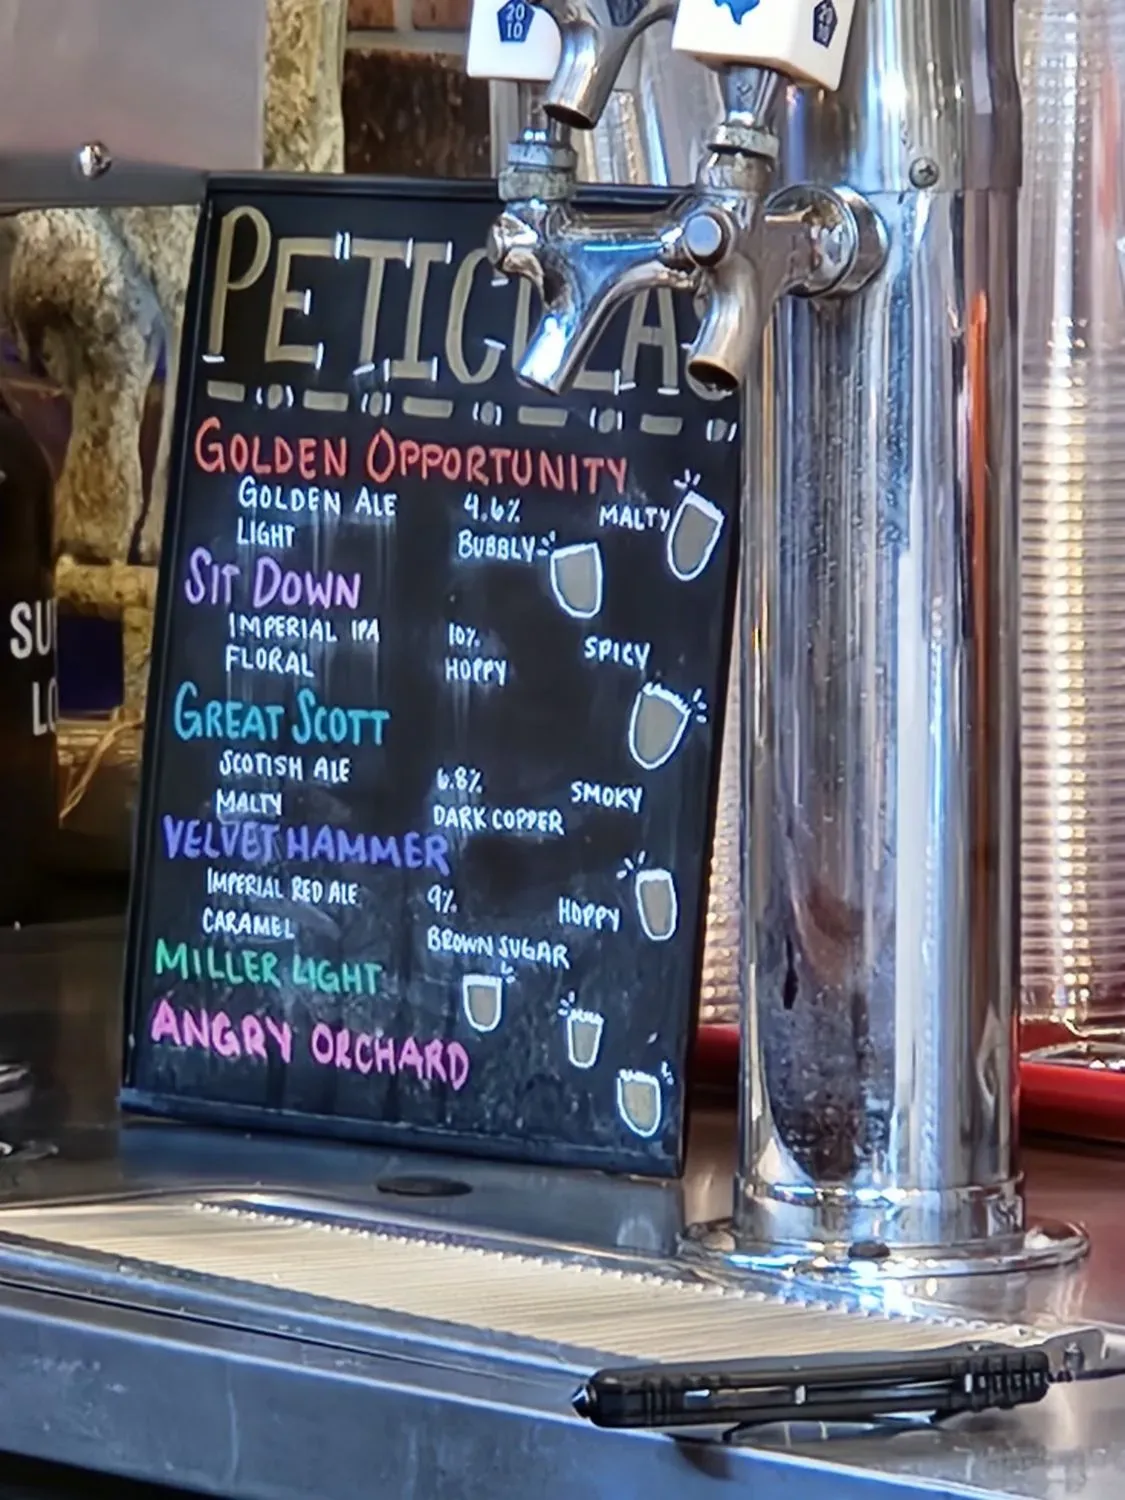 20
10
20
10
PETICOLAS
GOLDEN OPPORTUNITY
GOLDEN ALE 4.6% MALTY
LIGHT BUBBLY
SIT DOWN
IMPERIAL IPA 10% SPICY
FLORAL HOPPY
GREAT SCOTT
SCOTISH ALE 6.8% SMOKY
MALTY DARK COPPER
VELVET HAMMER
IMPERIAL RED ALE 9% HOPPY
CARAMEL BROWN SUGAR
MILLER LIGHT
ANGRY ORCHARD
SU
LO